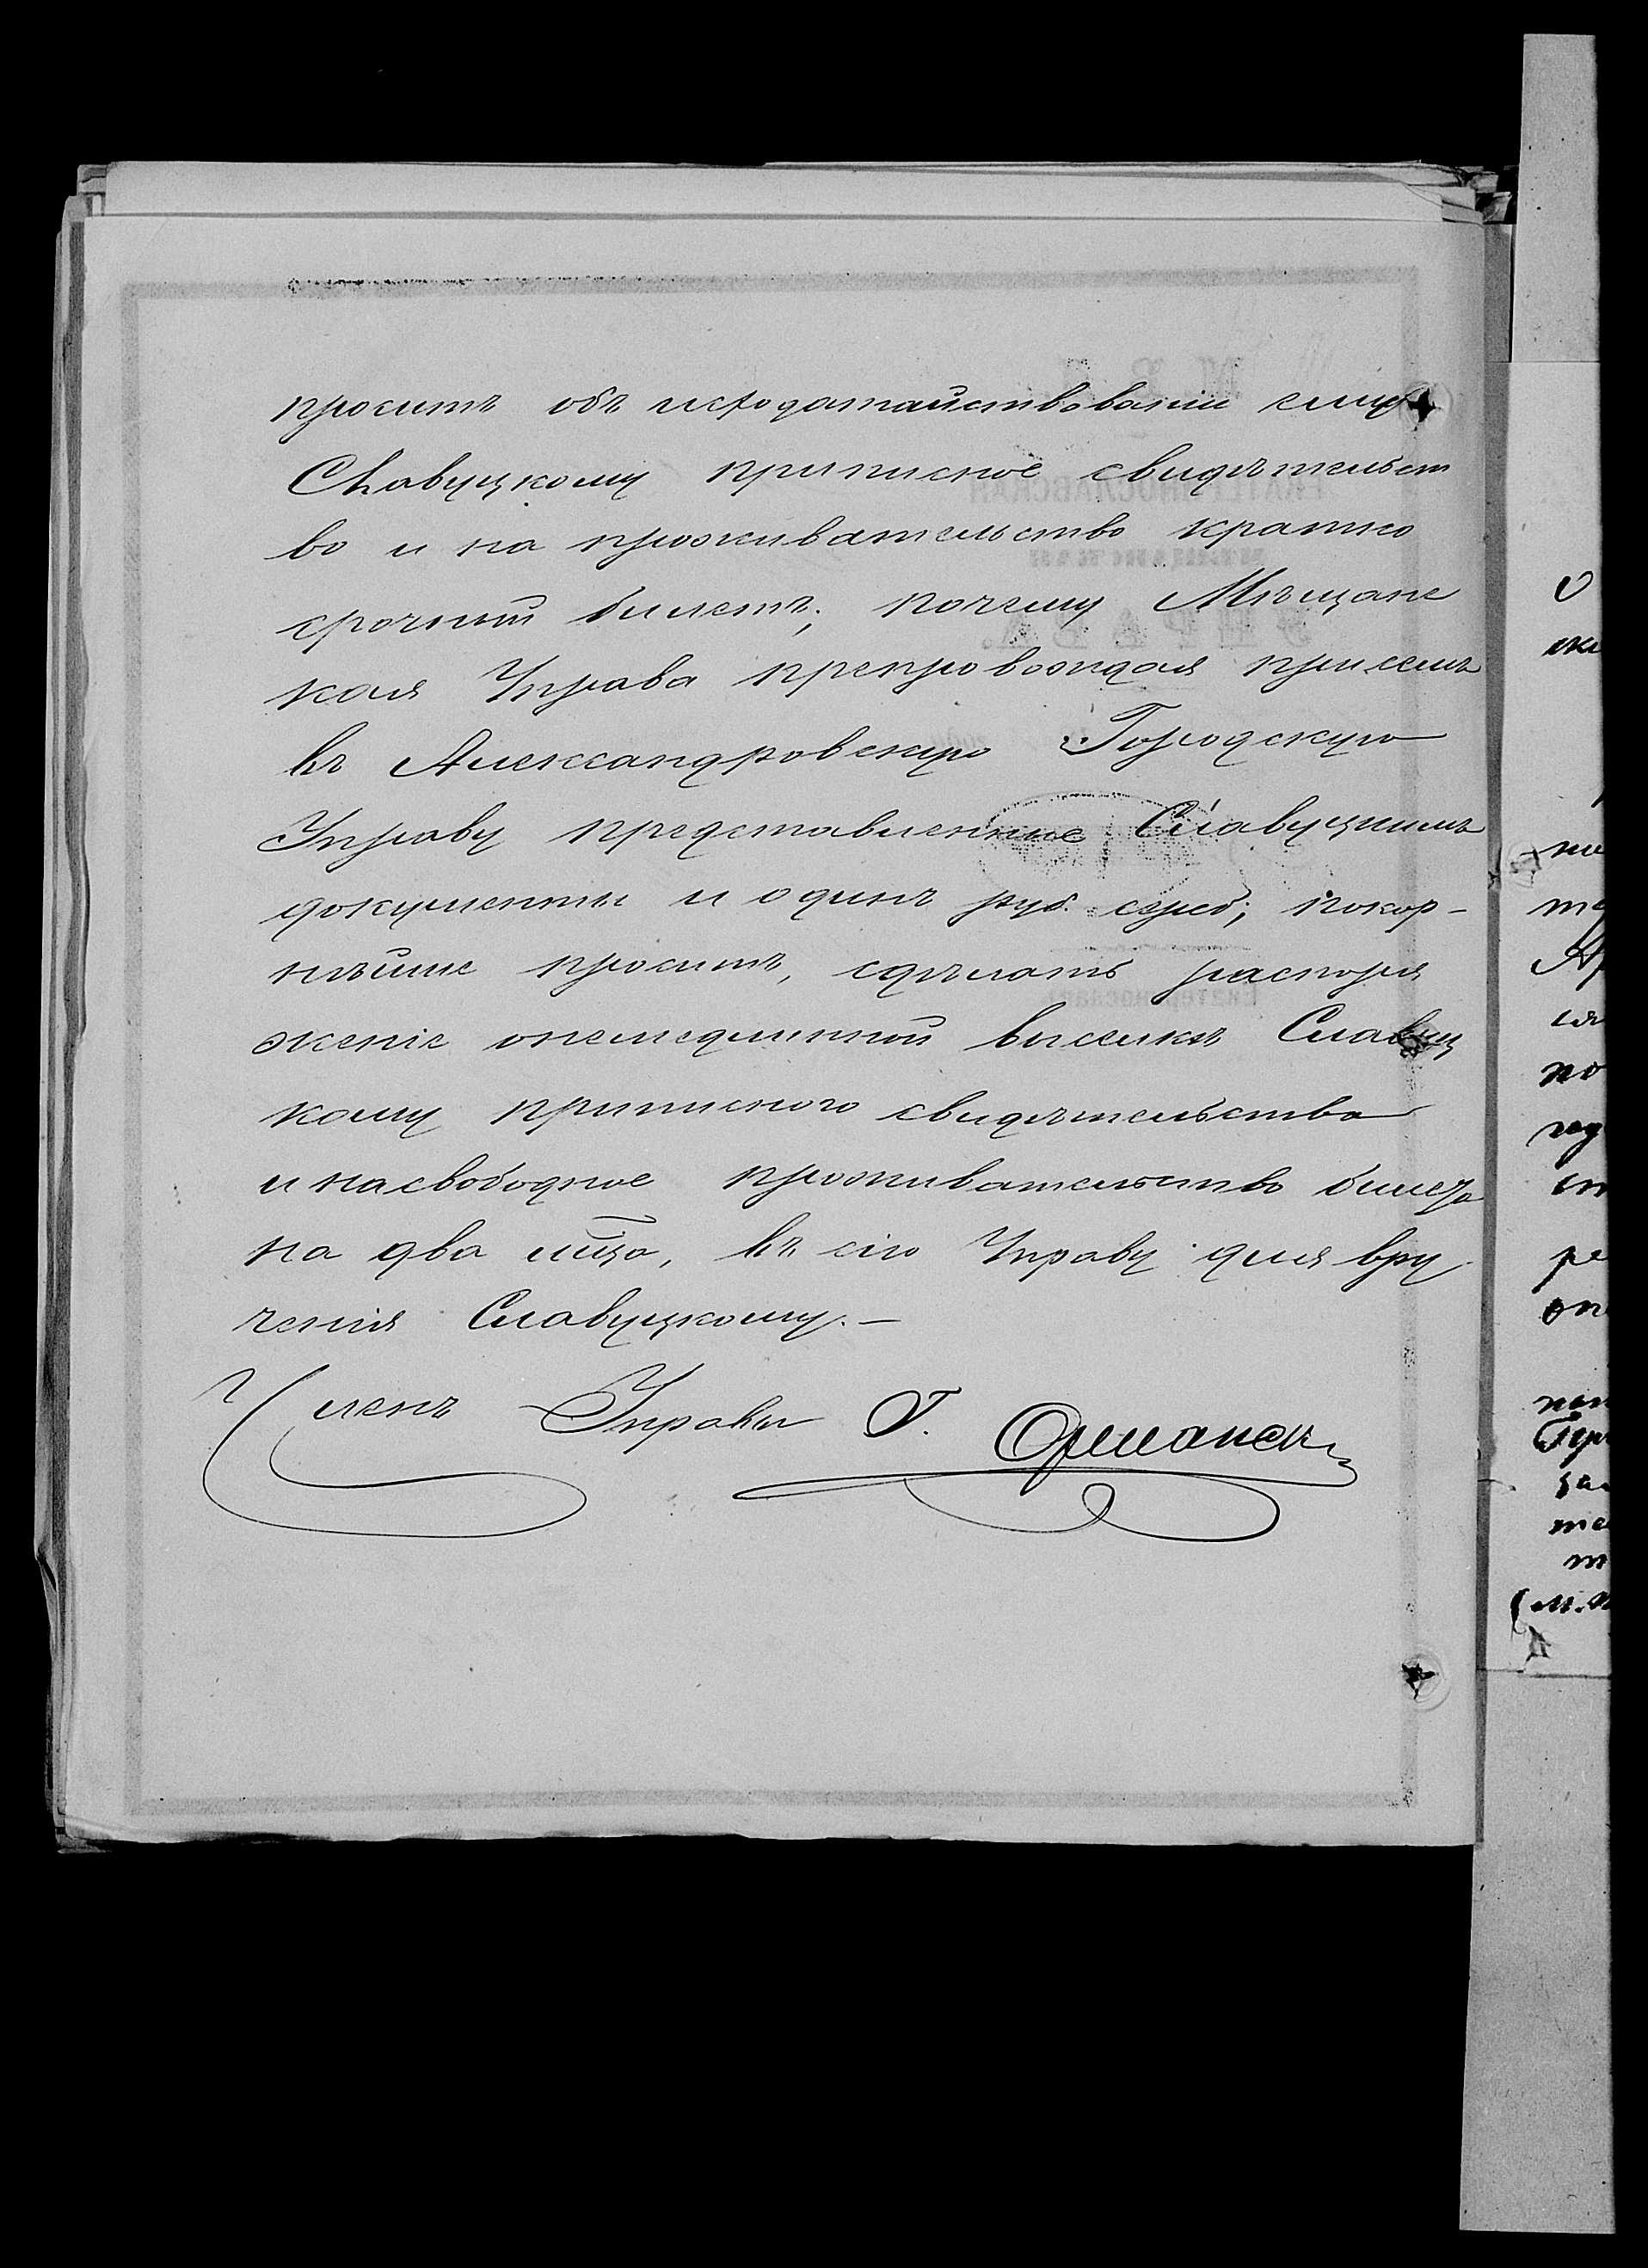 проситъ объ исходатайствованіи ему
Славуцкому приписное свидѣтельст
во и на прожевательство кратко
срочный билетъ; почему Мѣщанс
кая Управа препровождая при семъ
въ Александровскую Городскую
Управу представленные Славуцкимъ
документы и одинъ руб. сереб; покор-
нѣйше проситъ, сдѣлать распоря
женіе онемедленной высылкѣ Славуц
кому приписного свидѣтельства
и насвободное проживательство билета
на два мѣца, въ сію Управу для вру
ченія Славуцкому.—
Членъ Управы Г.